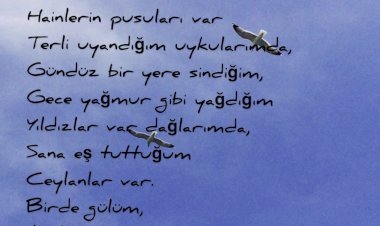 Hainlerin pusuları var
Terli uyandığım uykularımda,
Gündüz bir yere sindiğim,
Gece yağmur gibi yağdığım
Yıldızlar var dağlarımda,
Sana eş tuttuğum
Ceylanlar var.
Birde gülüm,